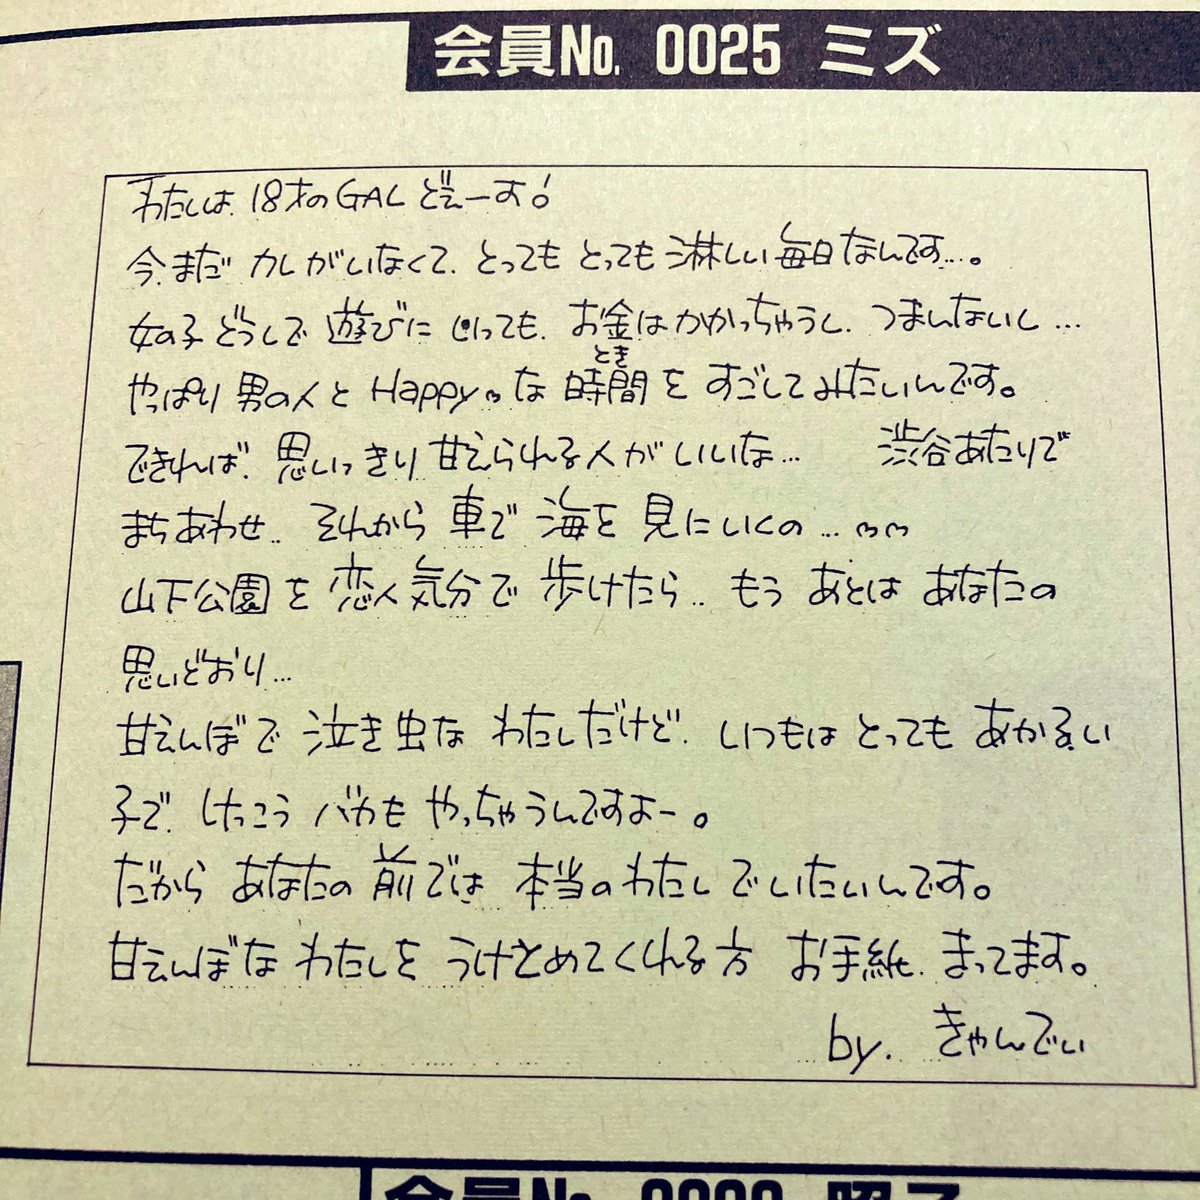 会員No. 0025 ミズ
わたしは、18才のGALどぇーす!
今、まだカレがいなくて、とってもとっても淋しい毎日なんです...。
女の子どうしで遊びにいっても、お金はかかっちゃうし、つまんないし...
やっぱり男の人とHappyな時間をすごしてみたいんです。
とき
できれば、思いっきり甘えられる人がいいな... 渋谷あたりで
まちあわせ.. それから車で海を見にいくの...
山下公園を恋人気分で歩けたら.. もうあとはあなたの
思いどおり...
甘えんぼで泣き虫なわたしだけど、いつもはとってもあかるい
子で、けっこうバカもやっちゃうんですよー。
だからあなたの前では本当のわたしでいたいんです。
甘えんぼなわたしをうけとめてくれる方 お手紙、まってます。
by. きゃんでぃ
会員No.